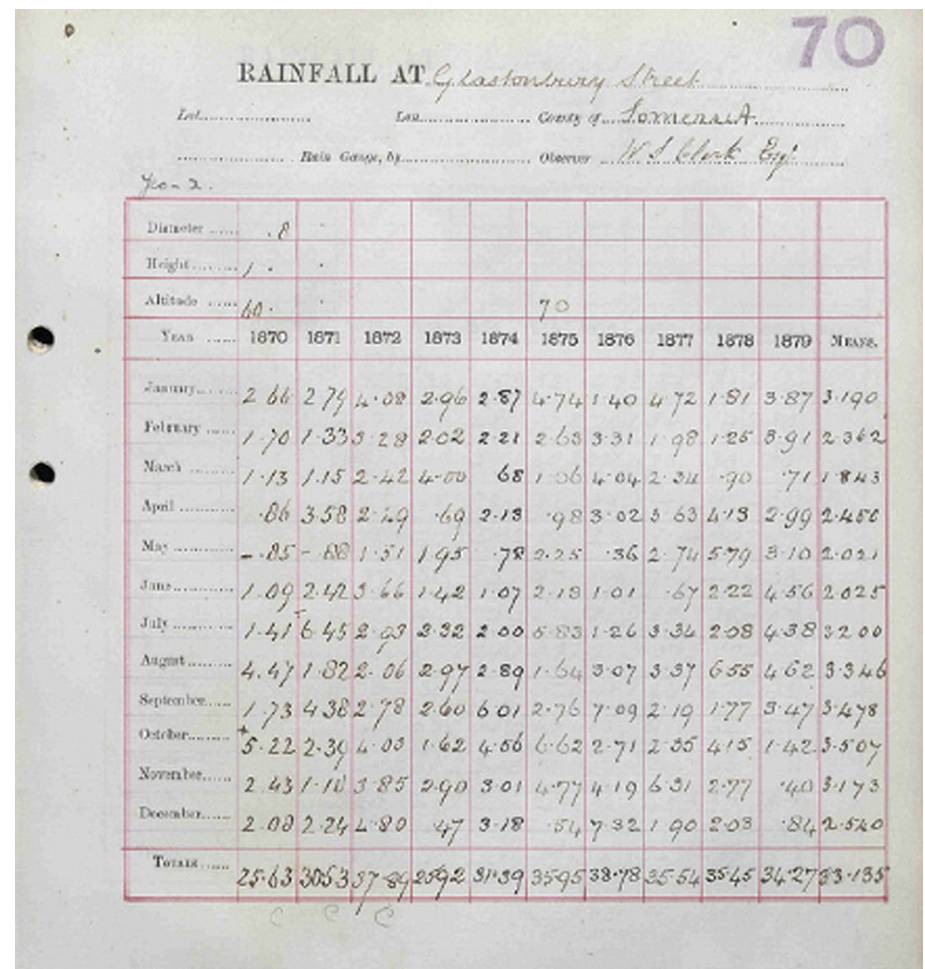 70
RAINFALL AT Glastonbury Street
Lat. Lon. County of Somerset
Rain Gauge, by Observer W S Clark Esq.
Diameter ...... .8
Height ........ 1.
Altitude ...... 60. 70
YEAR ...... 1870 1871 1872 1873 1874 1875 1876 1877 1878 1879 MEANS.
January 2.66 2.79 4.08 2.96 2.87 4.74 1.40 4.72 1.81 3.87 3.190
February 1.70 1.33 3.28 2.02 2.21 2.63 3.31 1.98 1.25 3.91 2.362
March 1.13 1.15 2.42 4.00 68 1.06 4.04 2.34 .90 .71 1.843
April .86 3.58 2.49 .69 2.13 .98 3.02 3.63 4.13 2.99 2.450
May - .85 - .88 1.51 1.95 .78 2.25 .36 2.74 5.79 3.10 2.021
June 1.09 2.42 3.66 1.42 1.07 2.13 1.01 .67 2.22 4.56 2.025
July 1.41 6.45 2.93 2.32 2.00 5.83 1.26 3.34 2.08 4.38 3.200
August 4.47 1.82 2.06 2.97 2.89 1.64 3.07 3.37 6.55 4.62 3.346
September 1.73 4.38 2.78 2.60 6.01 2.76 7.09 2.19 1.77 3.47 3.478
October + 5.22 2.39 4.03 1.62 4.56 6.62 2.71 2.35 4.15 1.42 3.507
November 2.43 1.10 3.85 2.90 3.01 4.77 4.19 6.31 2.77 .40 3.173
December 2.08 2.24 4.80 .47 3.18 .54 7.32 1.90 2.03 .84 2.540
TOTALS 25.63 30.53 37.89 25.92 31.39 35.95 38.78 35.54 35.45 34.27 33.135
C C C